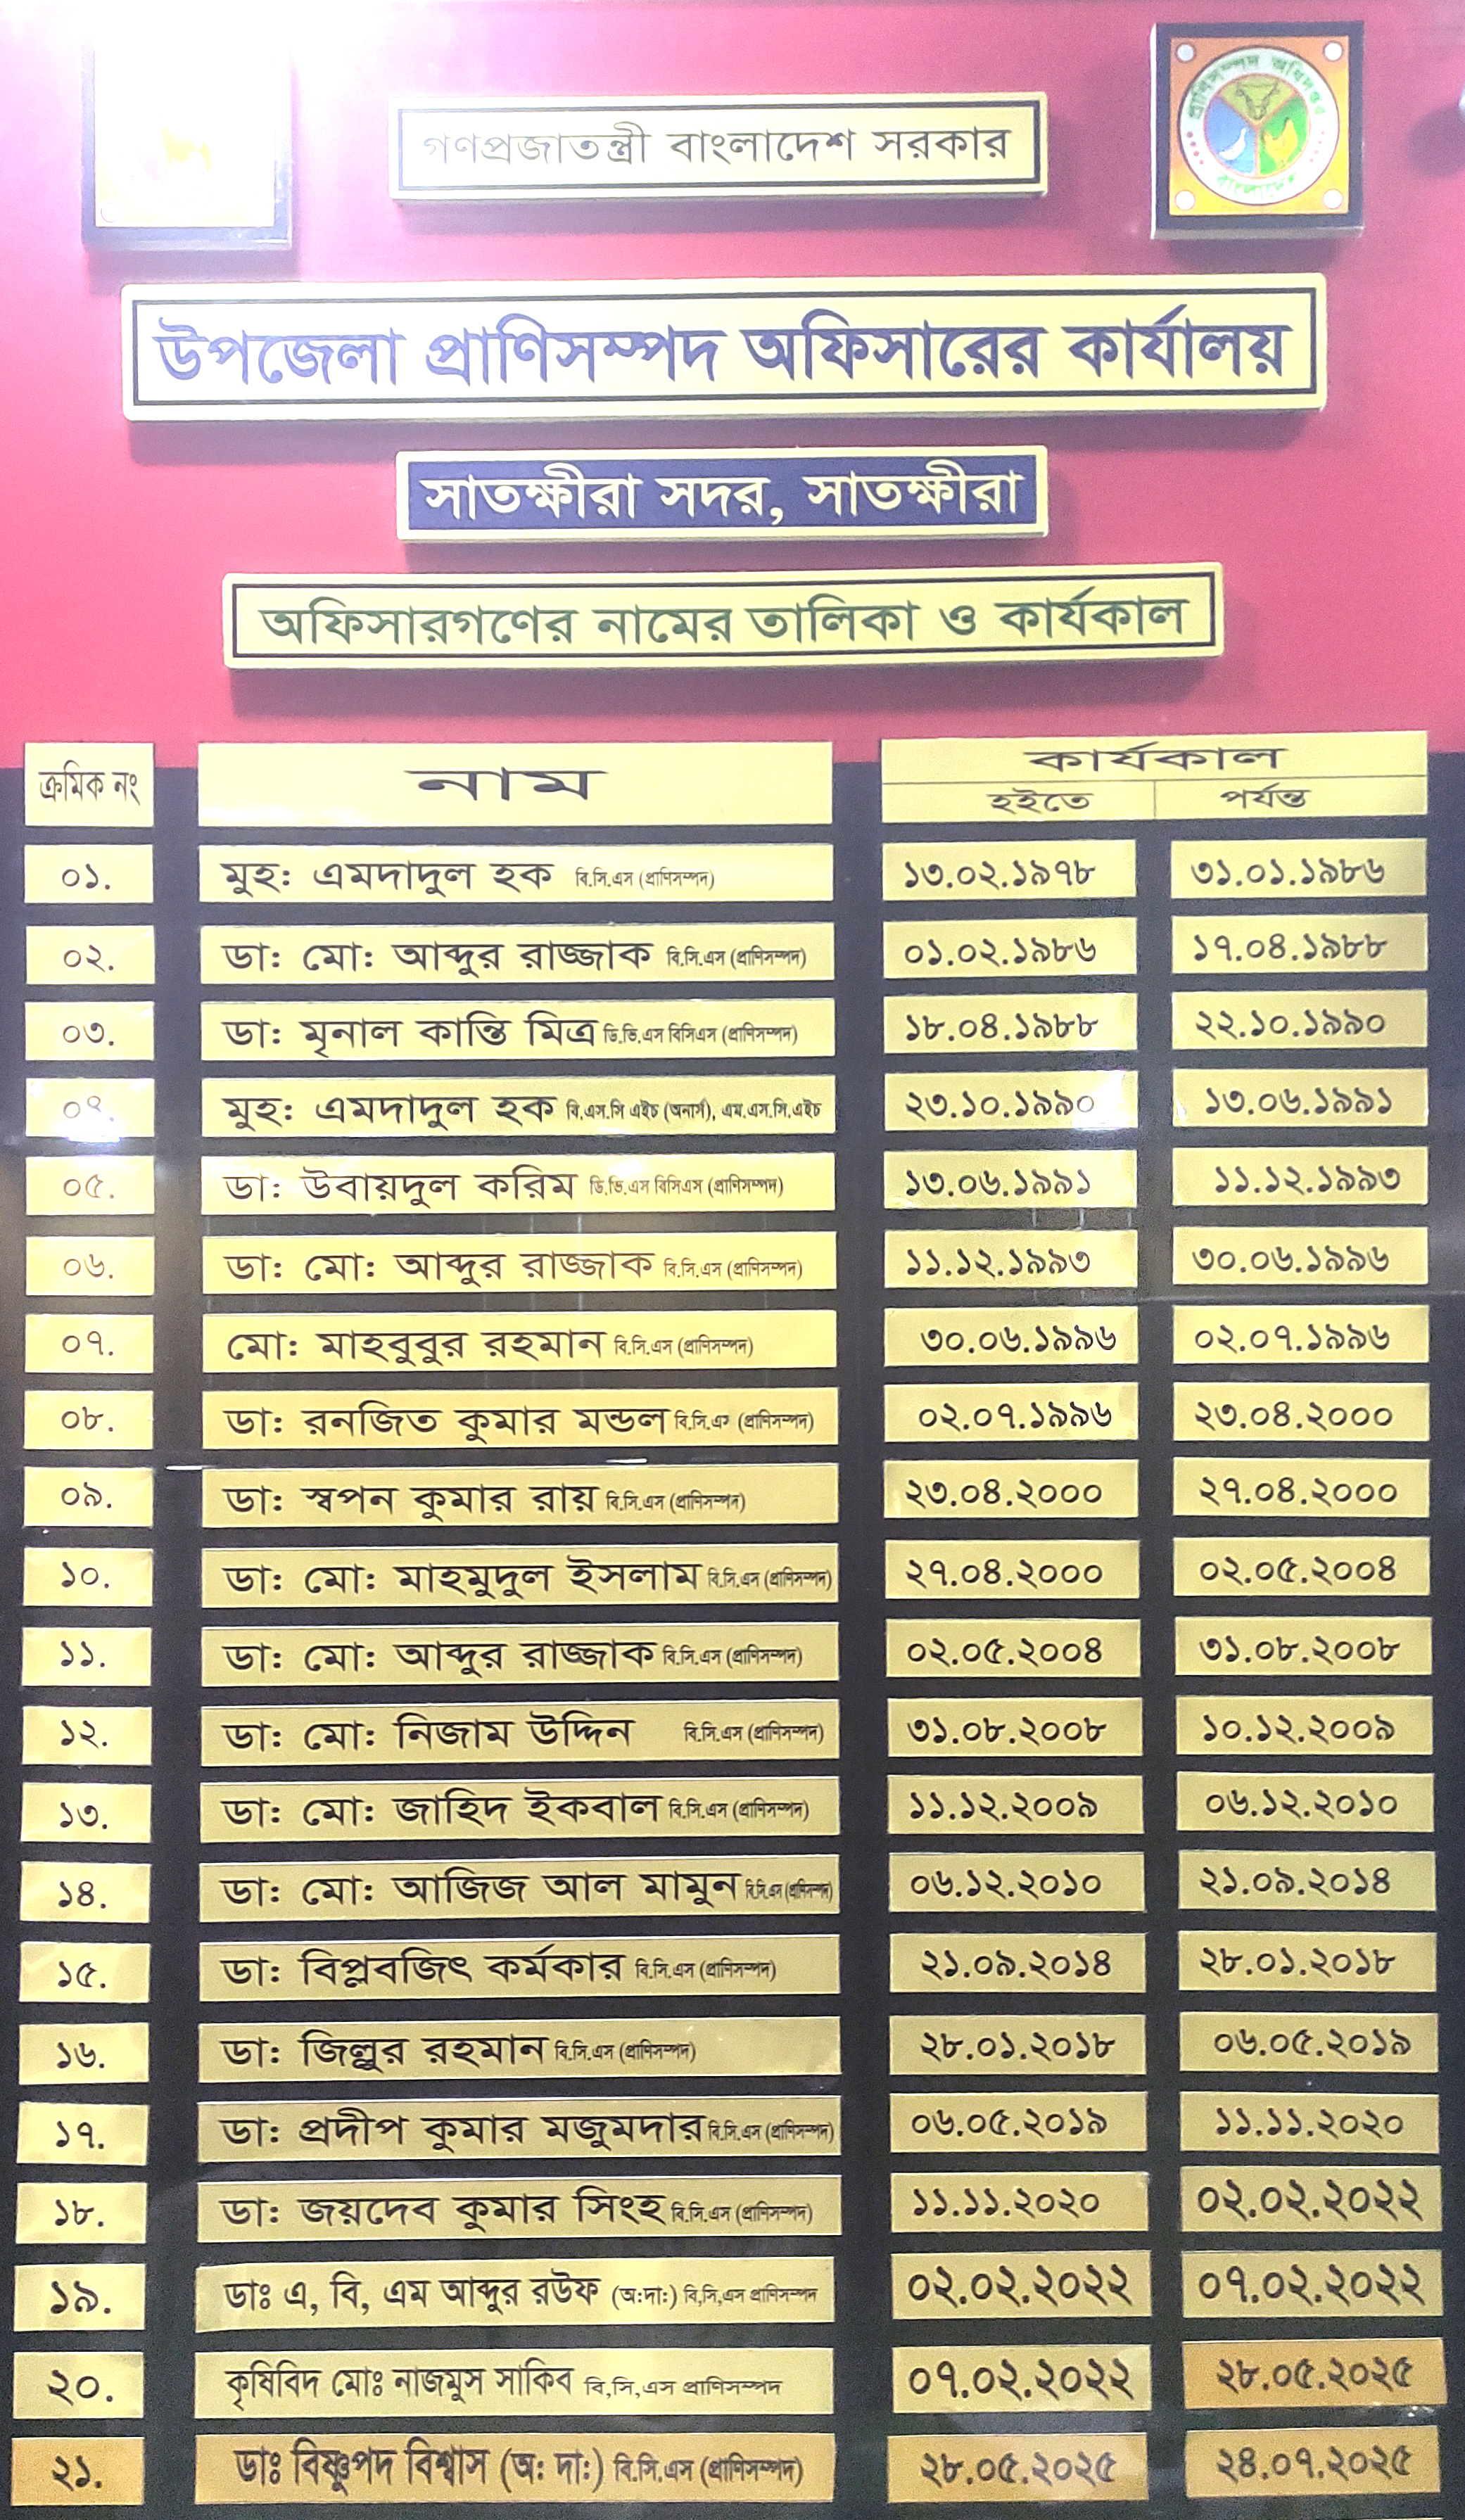 প্রাণিসম্পদ অধিদপ্তর
বাংলাদেশ
গণপ্রজাতন্ত্রী বাংলাদেশ সরকার
উপজেলা প্রাণিসম্পদ অফিসারের কার্যালয়
সাতক্ষীরা সদর, সাতক্ষীরা
অফিসারগণের নামের তালিকা ও কার্যকাল
ক্রমিক নং নাম কার্যকাল
হইতে পর্যন্ত
০১. মুহ: এমদাদুল হক বি.সি.এস (প্রাণিসম্পদ) ১৩.০২.১৯৭৮ ৩১.০১.১৯৮৬
০২. ডা: মো: আব্দুর রাজ্জাক বি.সি.এস (প্রাণিসম্পদ) ০১.০২.১৯৮৬ ১৭.০৪.১৯৮৮
০৩. ডা: মৃনাল কান্তি মিত্র ডি.ভি.এস বিসিএস (প্রাণিসম্পদ) ১৮.০৪.১৯৮৮ ২২.১০.১৯৯০
০৪. মুহ: এমদাদুল হক বি.এস.সি এইচ (অনার্স), এম.এস.সি.এইচ ২৩.১০.১৯৯০ ১৩.০৬.১৯৯১
০৫. ডা: উবায়দুল করিম ডি.ভি.এস বিসিএস (প্রাণিসম্পদ) ১৩.০৬.১৯৯১ ১১.১২.১৯৯৩
০৬. ডা: মো: আব্দুর রাজ্জাক বি.সি.এস (প্রাণিসম্পদ) ১১.১২.১৯৯৩ ৩০.০৬.১৯৯৬
০৭. মো: মাহবুবুর রহমান বি.সি.এস (প্রাণিসম্পদ) ৩০.০৬.১৯৯৬ ০২.০৭.১৯৯৬
০৮. ডা: রনজিত কুমার মন্ডল বি.সি.এস (প্রাণিসম্পদ) ০২.০৭.১৯৯৬ ২৩.০৪.২০০০
০৯. ডা: স্বপন কুমার রায় বি.সি.এস (প্রাণিসম্পদ) ২৩.০৪.২০০০ ২৭.০৪.২০০০
১০. ডা: মো: মাহমুদুল ইসলাম বি.সি.এস (প্রাণিসম্পদ) ২৭.০৪.২০০০ ০২.০৫.২০০৪
১১. ডা: মো: আব্দুর রাজ্জাক বি.সি.এস (প্রাণিসম্পদ) ০২.০৫.২০০৪ ৩১.০৮.২০০৮
১২. ডা: মো: নিজাম উদ্দিন বি.সি.এস (প্রাণিসম্পদ) ৩১.০৮.২০০৮ ১০.১২.২০০৯
১৩. ডা: মো: জাহিদ ইকবাল বি.সি.এস (প্রাণিসম্পদ) ১১.১২.২০০৯ ০৬.১২.২০১০
১৪. ডা: মো: আজিজ আল মামুন বি.সি.এস (প্রাণিসম্পদ) ০৬.১২.২০১০ ২১.০৯.২০১৪
১৫. ডা: বিপ্লবজিৎ কর্মকার বি.সি.এস (প্রাণিসম্পদ) ২১.০৯.২০১৪ ২৮.০১.২০১৮
১৬. ডা: জিল্লুর রহমান বি.সি.এস (প্রাণিসম্পদ) ২৮.০১.২০১৮ ০৬.০৫.২০১৯
১৭. ডা: প্রদীপ কুমার মজুমদার বি.সি.এস (প্রাণিসম্পদ) ০৬.০৫.২০১৯ ১১.১১.২০২০
১৮. ডা: জয়দেব কুমার সিংহ বি.সি.এস (প্রাণিসম্পদ) ১১.১১.২০২০ ০২.০২.২০২২
১৯. ডাঃ এ, বি, এম আব্দুর রউফ (অ:দা:) বি,সি,এস প্রাণিসম্পদ ০২.০২.২০২২ ০৭.০২.২০২২
২০. কৃষিবিদ মোঃ নাজমুস সাকিব বি,সি,এস প্রাণিসম্পদ ০৭.০২.২০২২ ২৮.০৫.২০২৫
২১. ডাঃ বিষ্ণুপদ বিশ্বাস (অ: দা:) বি.সি.এস (প্রাণিসম্পদ) ২৮.০৫.২০২৫ ২৪.০৭.২০২৫